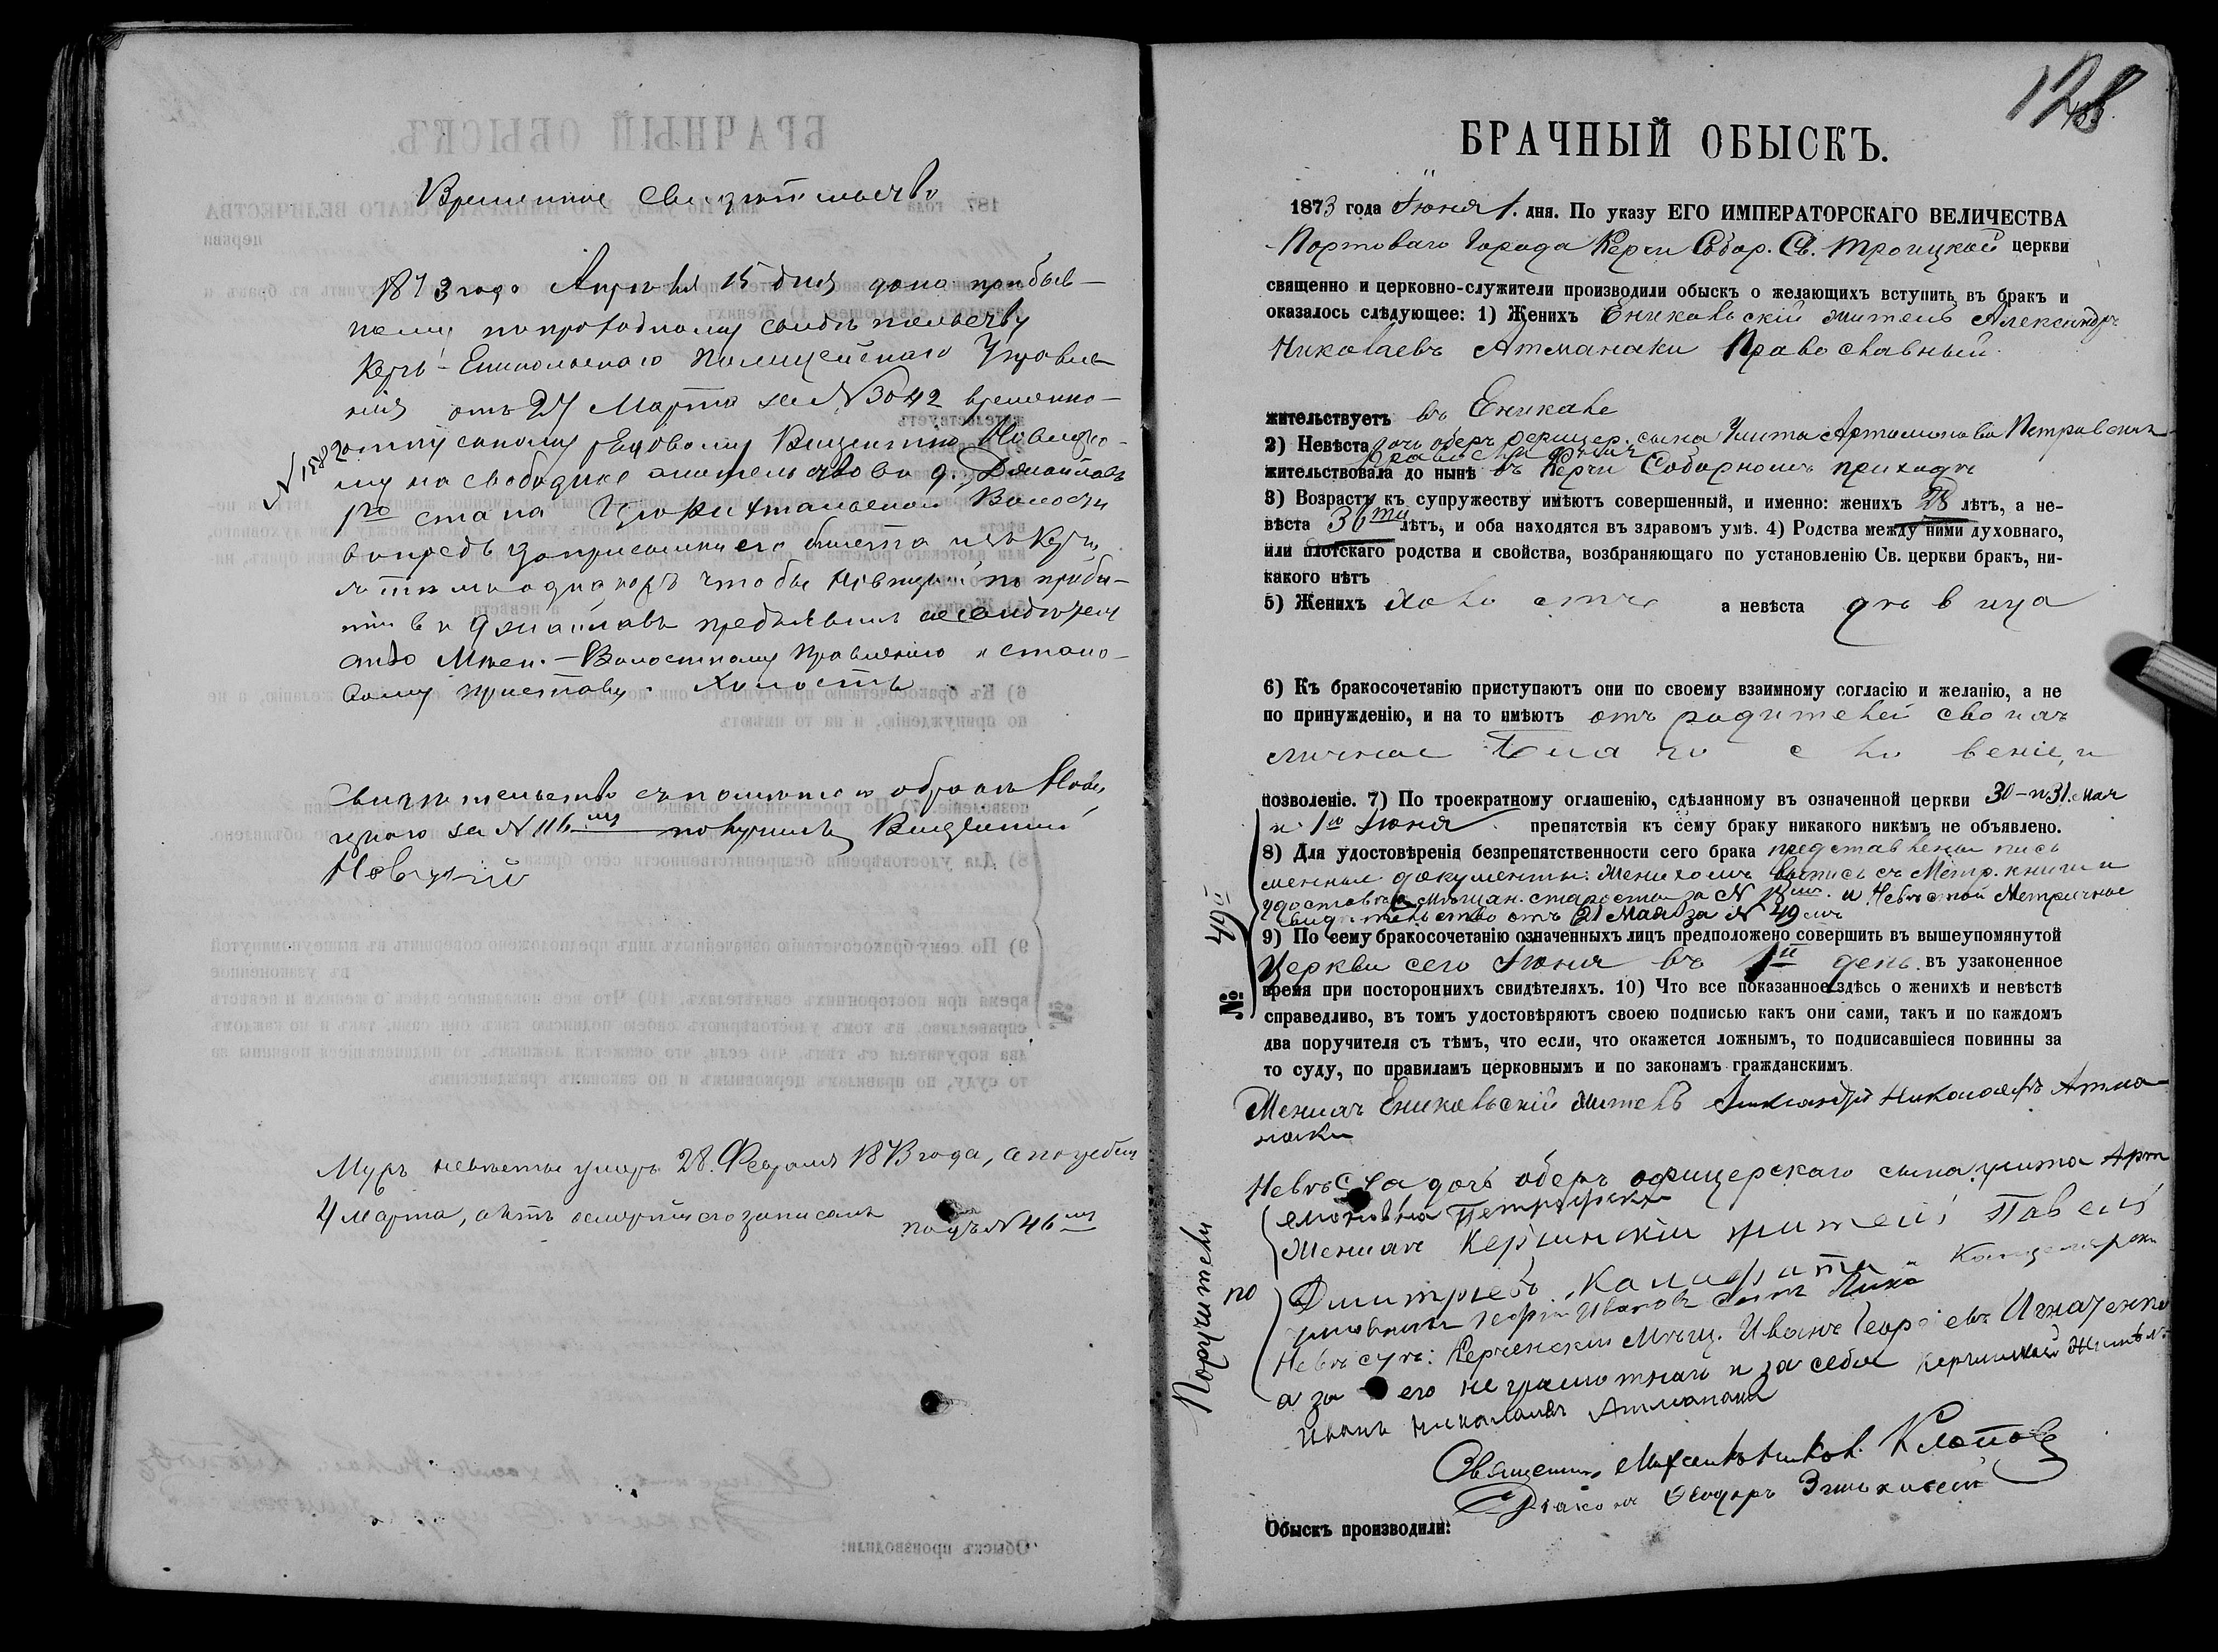 Временное свидѣтельство
1873 года Апрѣля 15 дня дано прибыв-
шему по проходному свидѣтельству
Керчь-Еникольскаго Полицейскаго Управле-
нія отъ 27 Марта за № 3042 временно-
отпускному рядовому Викентію
№ 1582
му на свободное жительство въ д. Джайлавъ
1го стана Волости
впредь до присылки его билета изъ Керчи,
съ тѣмъ чтобы по прибы-
тіи въ Джайлавъ предъявилъ
Волостному Правленію и стано-
вому приставу. Холостъ
Свидѣтельство обратно
за № 116мъ получилъ Викентій
Мужъ невѣсты умеръ 28. Февраля 1873 года, а погребенъ
4 Марта, актъ о смерти его записанъ подъ № 46мъ
128
БРАЧНЫЙ ОБЫСКЪ.
1873 года Іюня 1. дня. По указу ЕГО ИМПЕРАТОРСКАГО ВЕЛИЧЕСТВА
Портоваго Города Керчи Собор. Св. Троицкой церкви
священно и церковно-служители производили обыскъ о желающихъ вступить въ бракъ и
оказалось слѣдующее: 1) Женихъ Еникальскій житель Александръ
Николаевъ Атманаки Православный.
жительствуетъ въ Еникале
2) Невѣста дочь оберъ офицер. сына Улита Артамонова Петровская
православная
жительствовала до нынѣ въ Керчи Соборномъ приходѣ
3) Возрастъ къ супружеству имѣютъ совершенный, и именно: женихъ 28 лѣтъ, а не-
вѣста 36ти лѣтъ, и оба находятся въ здравомъ умѣ. 4) Родства между ними духовнаго,
или плотскаго родства и свойства, возбраняющаго по установленію Св. церкви бракъ, ни-
какого нѣтъ
5) Женихъ Холостъ а невѣста дѣвица
6) Къ бракосочетанію приступаютъ они по своему взаимному согласію и желанію, а не
по принужденію, и на то имѣютъ отъ родителей своихъ
личное благословеніе, и
позволеніе. 7) По троекратному оглашенію, сдѣланному въ означенной церкви 30-и 31. Мая
и 1го Іюня препятствія къ сему браку никакого никѣмъ не объявлено.
8) Для удостовѣренія безпрепятственности сего брака представлены пись
менные документы: Женихомъ Выпись съ Метр. книги и
удостов. мѣщан. старосты за № 18мъ и Невѣстой Метричное
свидѣтельство отъ 21 Мая за № 49мъ
9) По сему бракосочетанію означенныхъ лицъ предположено совершить въ вышеупомянутой
Церкви сего Іюня въ 1й день въ узаконенное
время при постороннихъ свидѣтеляхъ. 10) Что все показанное здѣсь о женихѣ и невѣстѣ
справедливо, въ томъ удостовѣряютъ своею подписью какъ они сами, такъ и по каждомъ
два поручителя съ тѣмъ, что если, что окажется ложнымъ, то подписавшіеся повинны за
то суду, по правиламъ церковнымъ и по законамъ гражданскимъ.
№
Женихъ Еникальскій житель Александръ Николаевъ Атма-
наки
Невѣста дочь оберъ офицерскаго сына Улита Арт
емоновна Петровская
Поручители по
Женихѣ Керчинскій житель Павелъ
Дмитріевъ и Канцелярскій
Георгій Ивановъ сынъ
Невѣстѣ: Керченскій Мѣщ. Иванъ Георгіевъ Игнатенко
а за его неграмотнаго и за себя Керчинскій Житель
Иванъ Николаевъ Атманаки
Священникъ Михаилъ Клоповъ
Діаконъ Ѳеодоръ
Обыскъ производили: